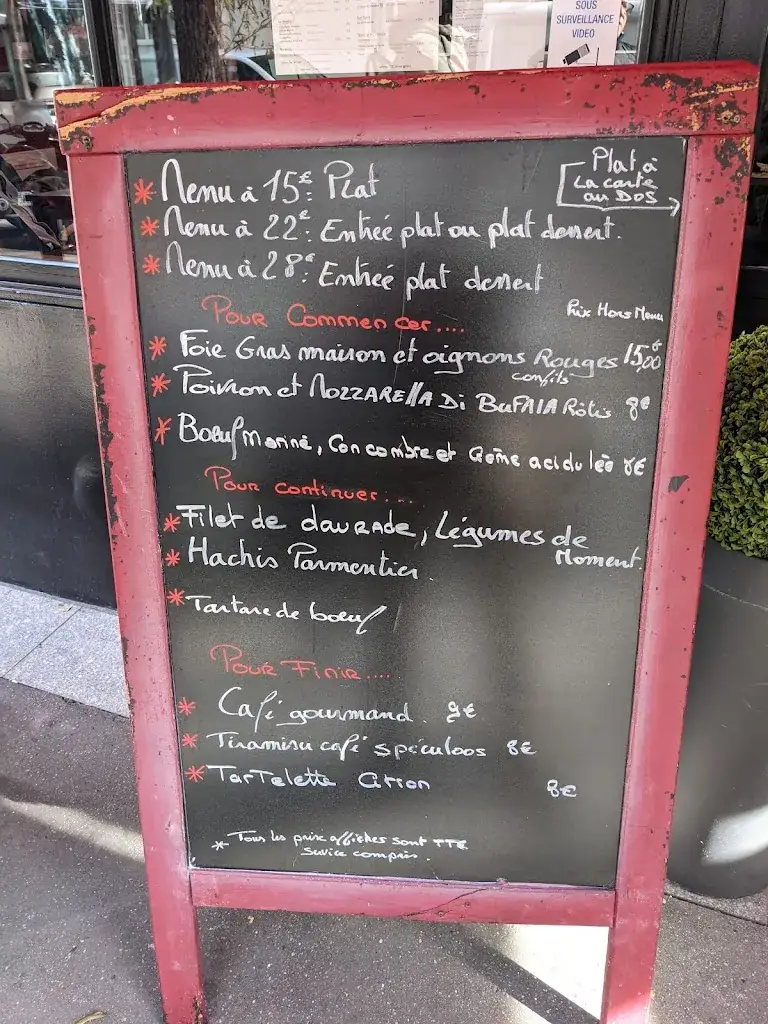 SOUS
SURVEILLANCE
VIDEO
Plat à
La carte
au DOS
* Menu à 15€: Plat
* Menu à 22€: Entrée plat ou plat dessert.
* Menu à 28€: Entrée plat dessert
Prix Hors Menu
Pour Commencer....
* Foie Gras maison et oignons Rouges 15,00€
confits
* Poivron et MOZZARELLA Di BUFALA Rôtis 8€
* Boeuf Mariné, Concombre et Crème acidulée 8€
Pour continuer...
* Filet de daurade, Légumes de
Moment.
* Hachis Parmentier
* Tartare de boeuf
Pour Finir....
* Café gourmand. 9€
* Tiramisu café spéculoos 8€
* Tartelette Citron 8€
* Tous les prix affichés sont TTC
Service compris.